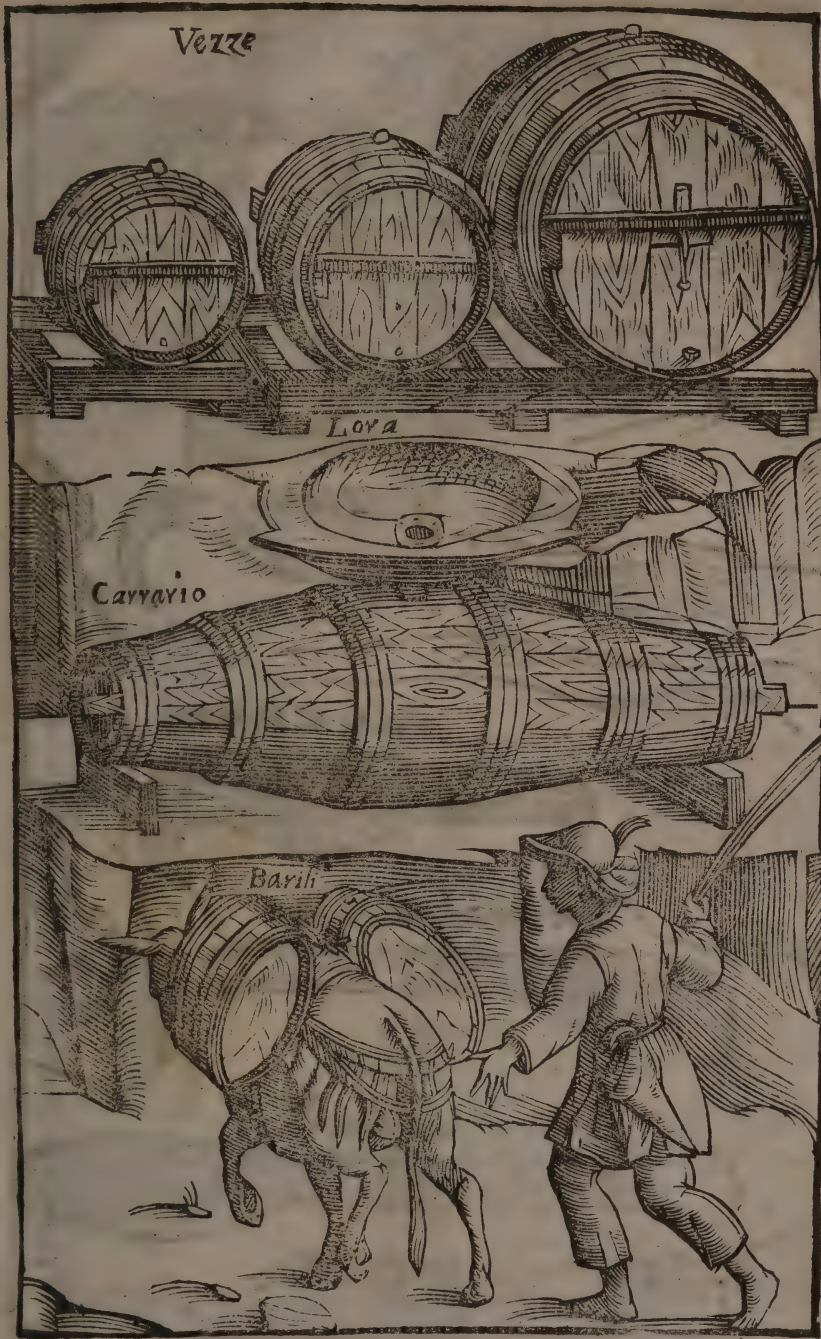 Vezze
Lova
Carrario
Barili